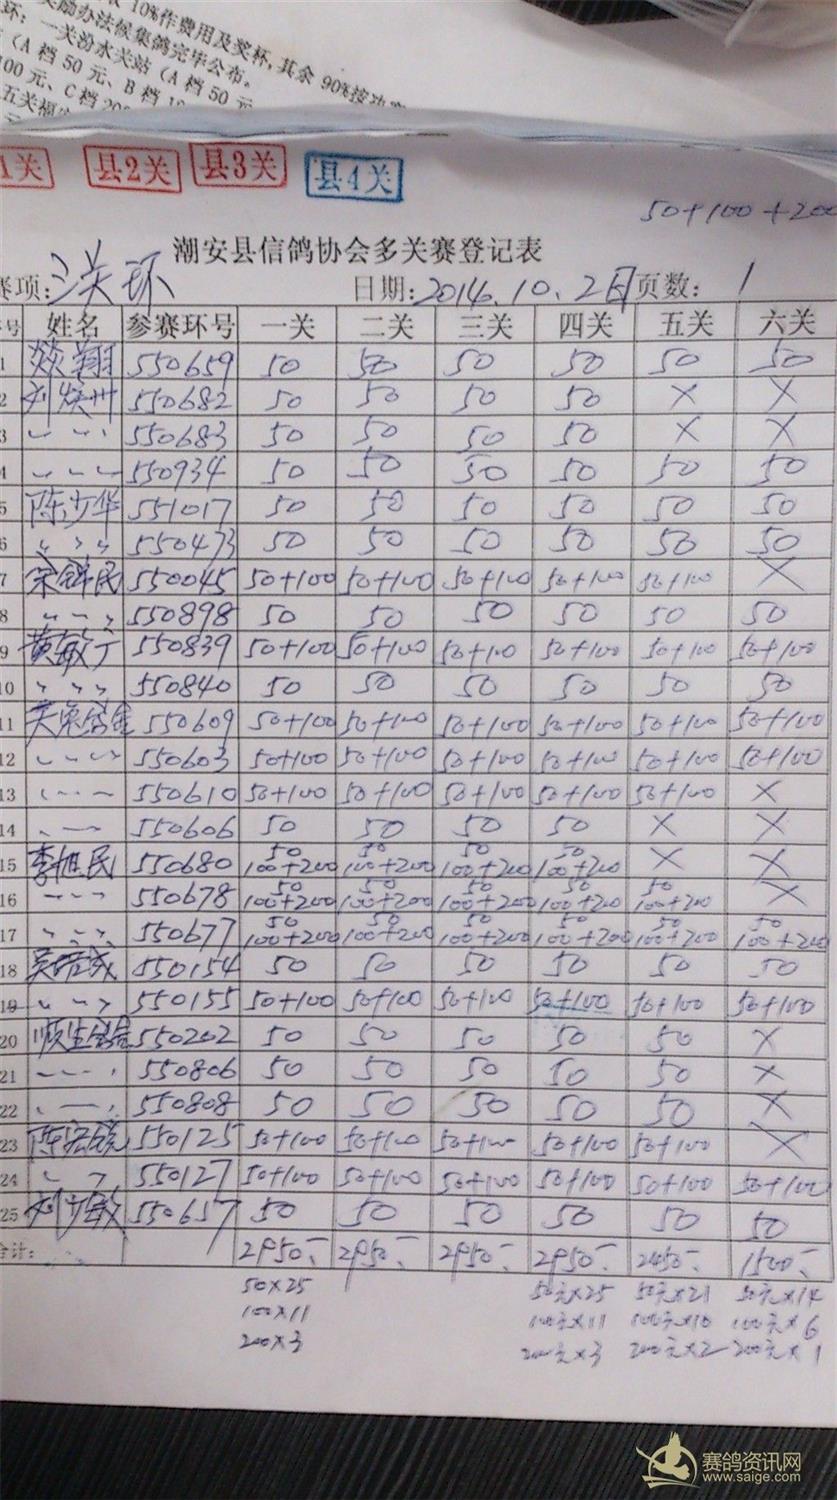 10%作费用及奖杯,其余 90%按功
奖励办法候集鸽完毕公布。
环: 一关汾水关站 (A 档 50 元
(A 档 50 元、B 档
100 元、C 档 200
五关福
1关 县2关 县3关 县4关
50+100+200
潮安县信鸽协会多关赛登记表
赛项: 日期:2014.10.2日 页数: 1
序号 姓名 参赛环号 一关 二关 三关 四关 五关 六关
1 翔 550659 50 50 50 50 50 50
2 刘 550682 50 50 50 50 X X
3 〃 550683 50 50 50 50 X X
4 〃 550934 50 50 50 50 50 50
5 陈少华 551017 50 50 50 50 50 50
6 〃 550473 50 50 50 50 50 50
7 民 550045 50+100 50+100 50+100 50+100 50+100 X
8 〃 550898 50 50 50 50 50 50
9 黄敏 550839 50+100 50+100 50+100 50+100 50+100 50+100
10 〃 550840 50 50 50 50 50 50
11 550609 50+100 50+100 50+100 50+100 50+100 50+100
12 〃 550603 50+100 50+100 50+100 50+100 50+100 50+100
13 〃 550610 50+100 50+100 50+100 50+100 50+100 X
14 〃 550606 50 50 50 50 X X
15 李旭民 550680 50 100+200 50 100+200 50 100+200 50 100+200 X X
16 〃 550678 50 100+200 50 100+200 50 100+200 50 100+200 50 100+200 X
17 〃 550677 50 100+200 50 100+200 50 100+200 50 100+200 50 100+200 50 100+200
18 吴 550154 50 50 50 50 50 50
19 〃 550155 50+100 50+100 50+100 50+100 50+100 50+100
20 顺 550202 50 50 50 50 50 X
21 〃 550806 50 50 50 50 50 X
22 〃 550808 50 50 50 50 50 X
23 陈宏 550125 50+100 50+100 50+100 50+100 50+100 X
24 〃 550127 50+100 50+100 50+100 50+100 50+100 50+100
25 刘少敏 550657 50 50 50 50 50 50
合计: 2950 2950 2950 2950 2450 1500
50×25 50元×25 50元×21 50元×14
100×11 100元×11 100元×10 100元×6
200×3 200元×3 200元×2 200元×1
赛鸽资讯网
www.saige.com